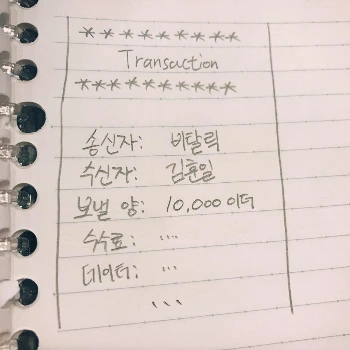 * * * * * * * * *
Transaction
* * * * * * * * * *
송신자: 비탈릭
수신자: 김훈일
보낼 양: 10,000 이더
수수료: ...
데이터: ...
...